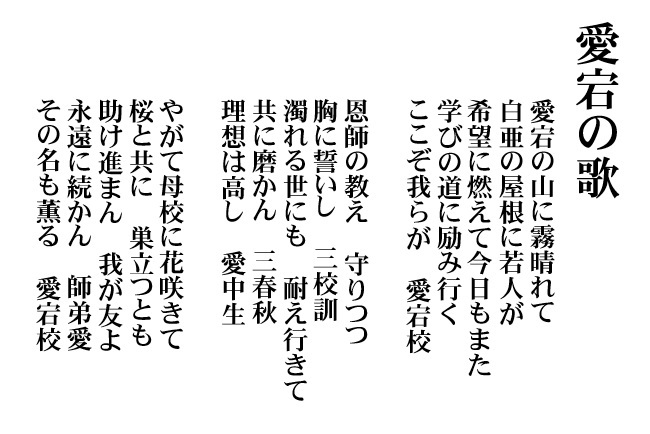 愛宕の歌
愛宕の山に霧晴れて
白亜の屋根に若人が
希望に燃えて今日もまた
学びの道に励み行く
ここぞ我らが　愛宕校
恩師の教え　守りつつ
胸に誓いし　三校訓
濁れる世にも　耐え行きて
共に磨かん　三春秋
理想は高し　愛中生
やがて母校に花咲きて
桜と共に　巣立つとも
助け進まん　我が友よ
永遠に続かん　師弟愛
その名も薫る　愛宕校